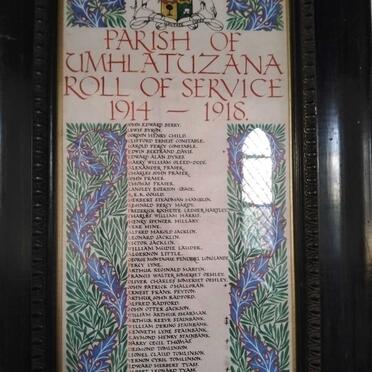 PARISH OF
UMHLATUZANA
ROLL OF SERVICE
1914 — 1918.
JOHN EDWARD BERRY.
LEWIS BYRON.
GORDON HENRY CHILD.
CLIFFORD ERNEST CONSTABLE.
HAROLD PERCY CONSTABLE.
EDWIN BERTRAND DAVIS.
EDWARD ALAN DYKES
HARRY WILLIAM
ALEXANDER FRASER.
CHARLES JOHN FRASER.
JOHN FRASER.
THOMAS FRASER.
LANGLEY EVERSON GRACE.
GOULD.
HERBERT STEADMAN
DONALD PERCY HARDY.
FREDERICK ROCHETTE HARTLEY
CHARLES WILLIAM HARRIS.
HENRY SPENCER HILLARY.
VERE HIME.
ALFRED HAROLD JACKLIN.
LEONARD JACKLIN.
VICTOR JACKLIN.
WILLIAM MUDIE LAUDER.
ALGERNON LITTLE.
GEORGE MONTAGUE
PERCY LYNE.
ARTHUR REGINALD MARTIN.
FRANCIS WALTER SOMERSET
OLIVER CHARLES SOMERSET
JOHN PATRICK O'HALLORAN.
ERNEST FRANK PEYTON.
ARTHUR JOHN RADFORD.
ALFRED RADFORD.
JOHN OTTER JACKSON.
WILLIAM ARTHUR SHARMAN.
ARTHUR REEVE STAINBANK.
WILLIAM DERING STAINBANK.
KENNETH LYNE STAINBANK.
RAYMOND HENRY STAINBANK.
HARRY CECIL THOMAS
DESMOND TOMLINSON
LIONEL CLAUD TOMLINSON
VERNON CYRIL TOMLINSON.
EDWARD HERBERT TYASE.
LEONARD TYASE